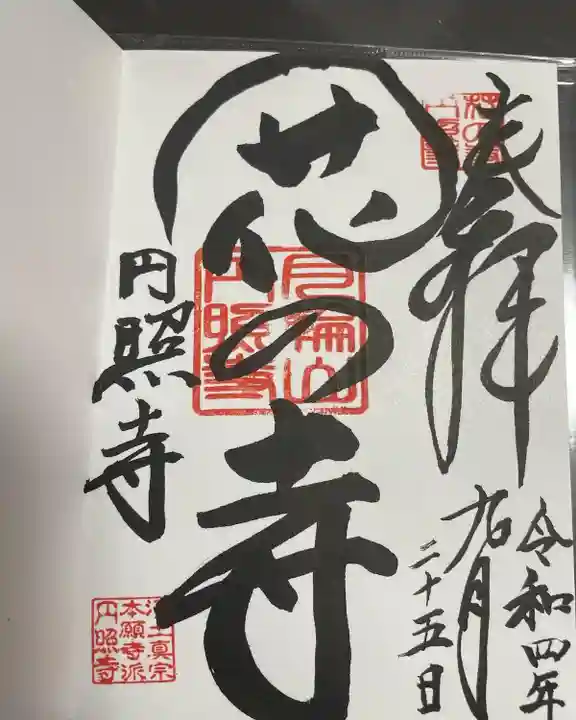 奉拝
令和四年
九月
二十五日
花の寺
円照寺
花の寺
円照寺
月輪山
円照寺
浄土真宗
本願寺派
円照寺